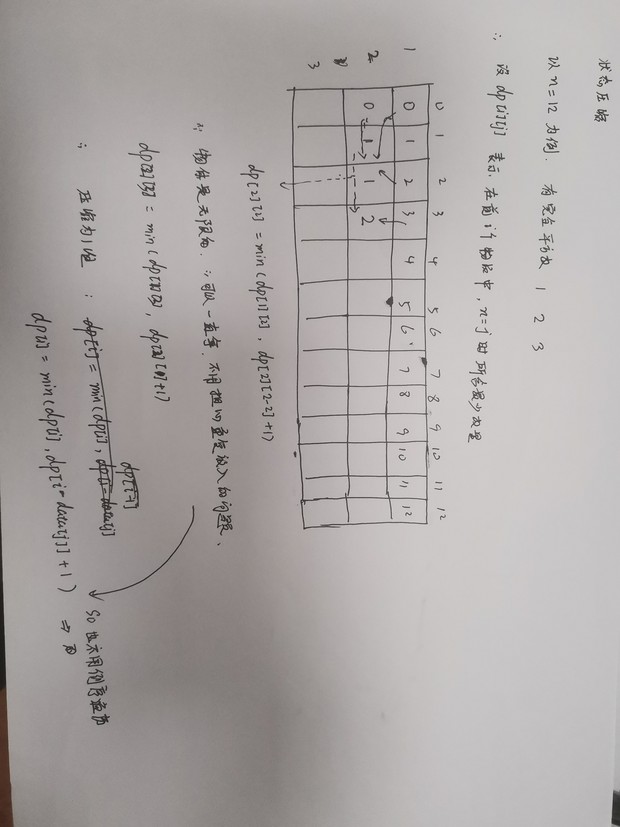 状态压缩
以 n=12 为例. 有完全平方数 1 2 3
∴ 设 dp[i][j] 表示 在前 i 个物品中, n=j 时 所需最少数量
0 1 2 3 4 5 6 7 8 9 10 11 12
1 0 1 2 3 4 5 6 7 8 9 10 11 12
2 0 1 1 2
3
dp[2][2] = min(dp[1][2], dp[2][2-2]+1)
∵ 物品是无限的. ∴ 可以一直拿. 不用担心重复放入的问题.
dp[2][3] = min(dp[1][3], dp[2][1]+1)
∴ 压缩为1维 : dp[i] = min(dp[i], dp[i-data[j]]
dp[i] = min(dp[i], dp[i-data[j]]+1) ⇒
so 也不用倒序遍历